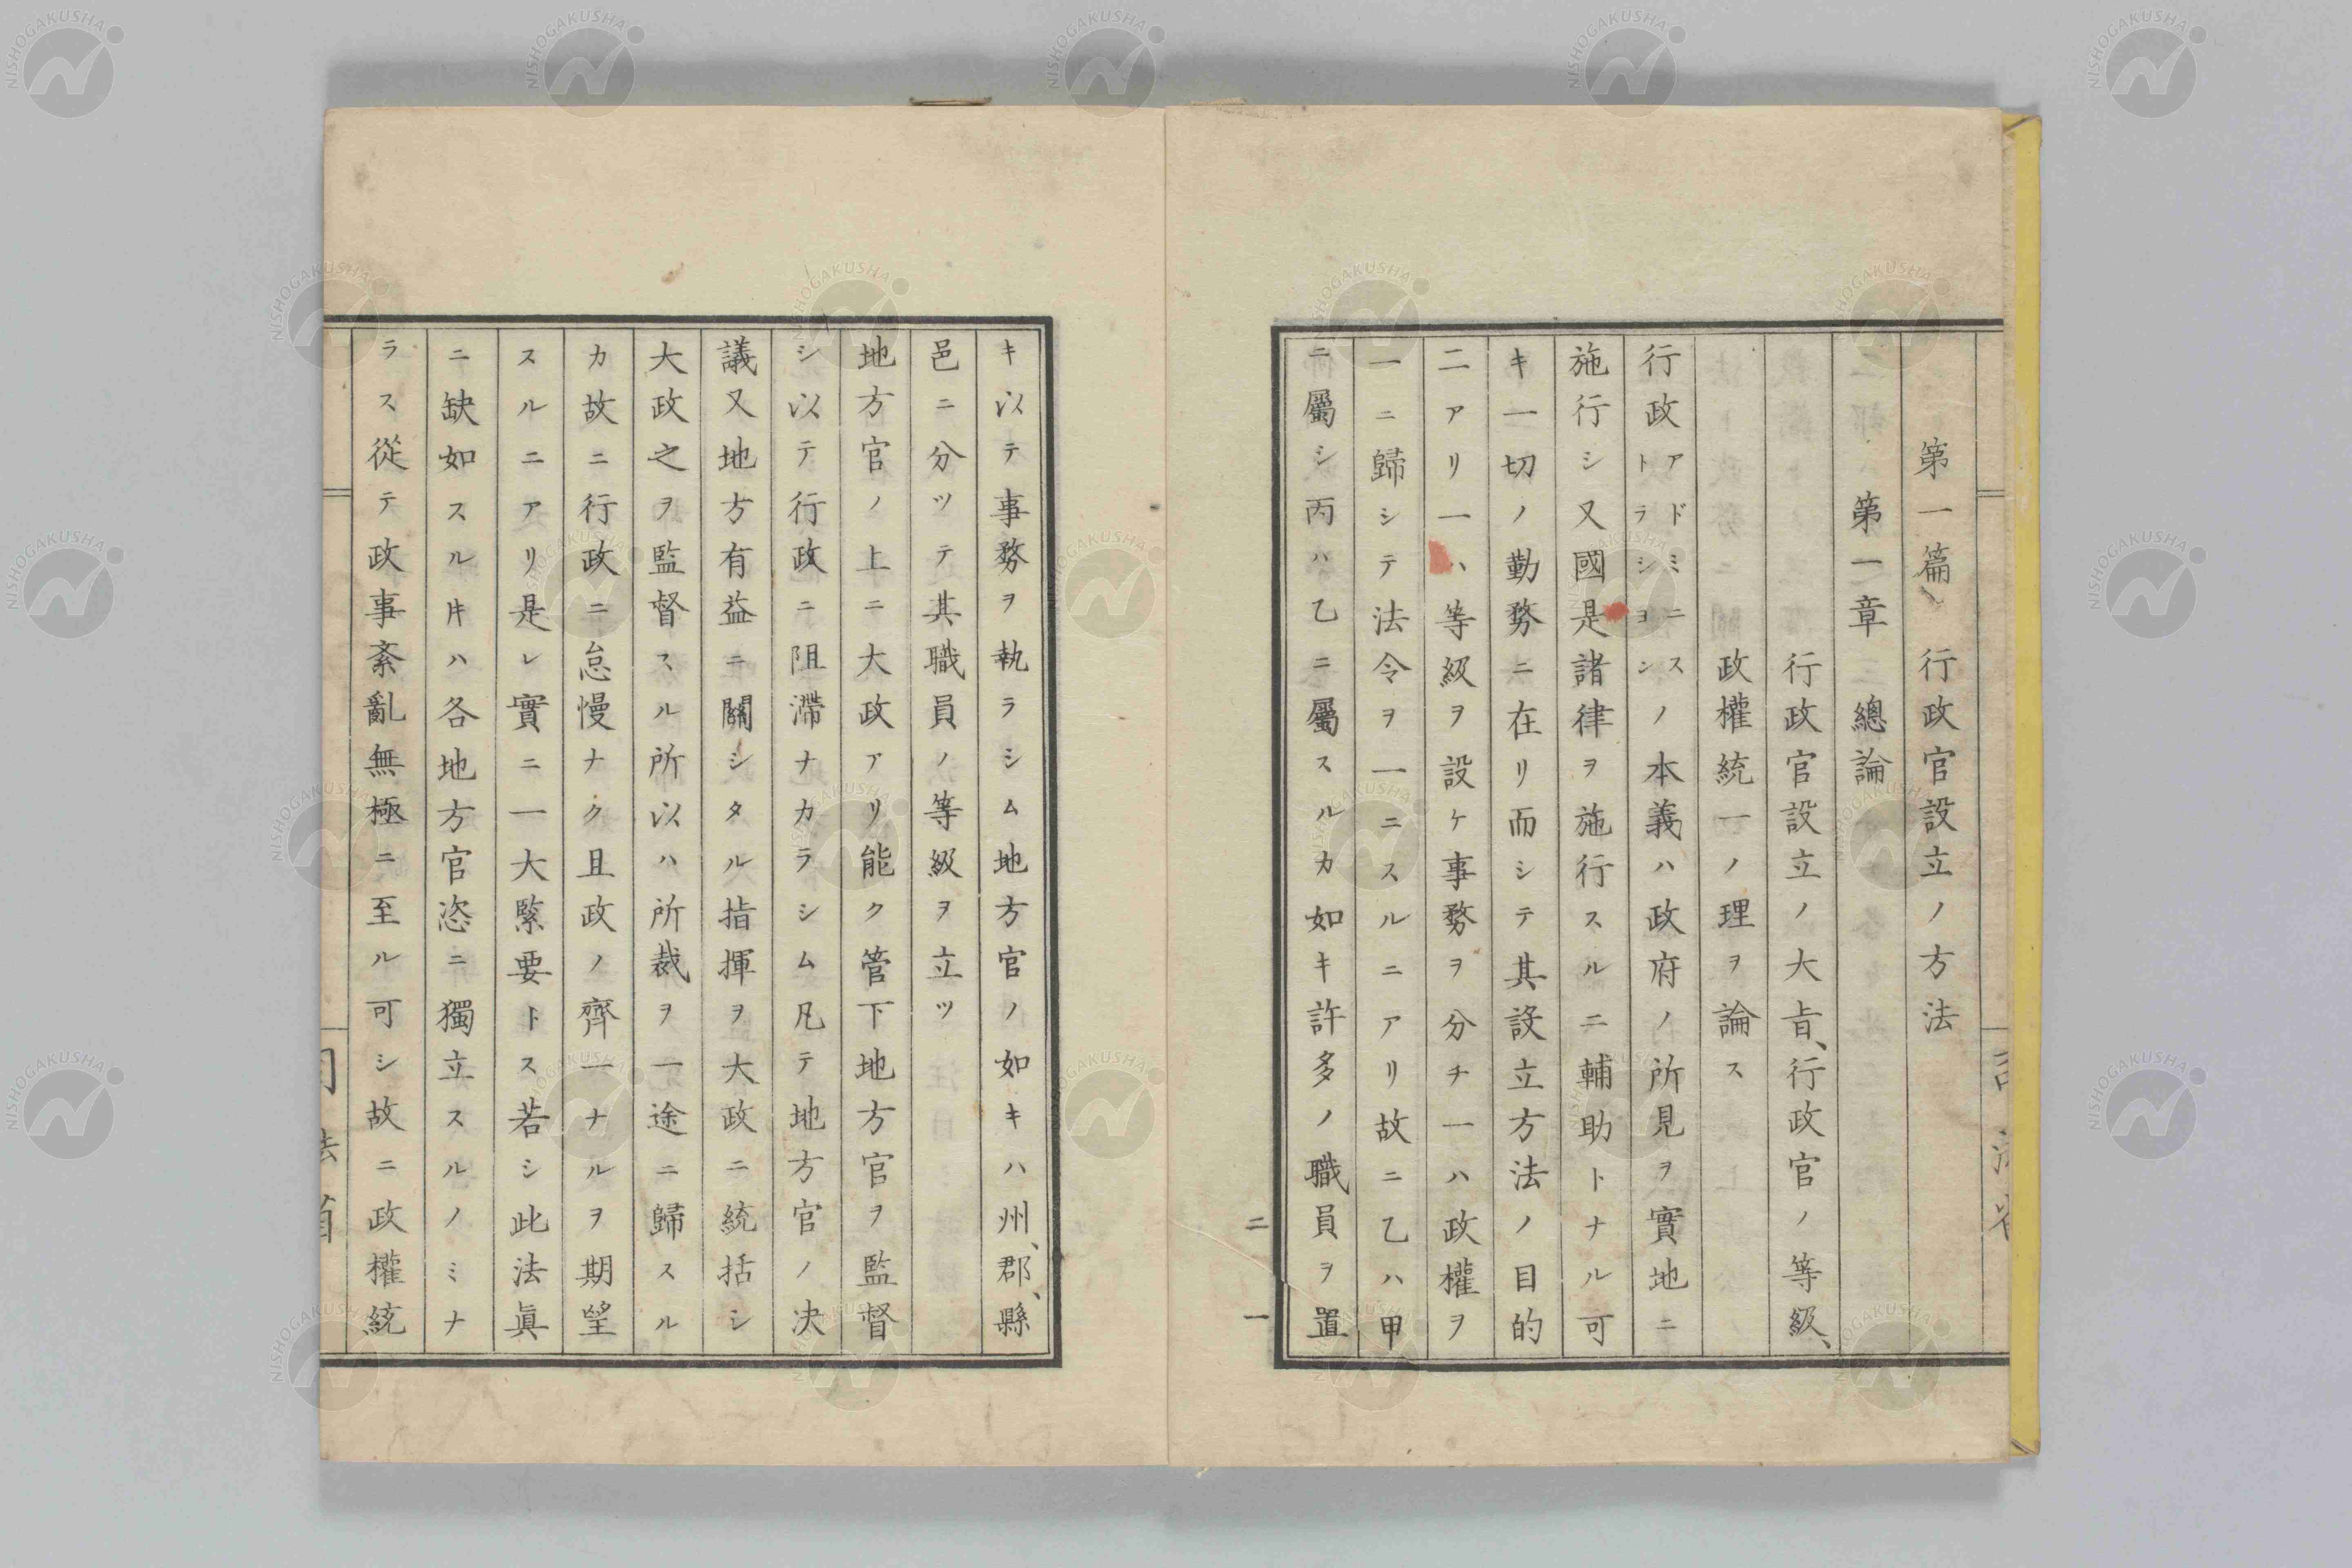 第一篇 行政官設立ノ方法
第一章 總論
行政官設立ノ大旨、行政官ノ等級、
政權統一ノ理ヲ論ス
行政アドミニストラシヨンノ本義ハ政府ノ所見ヲ實地ニ
施行シ又國是諸律ヲ施行スルニ輔助トナル可
キ一切ノ勤務ニ在リ而シテ其設立方法ノ目的
二アリ一ハ等級ヲ設ケ事務ヲ分チ一ハ政權ヲ
一ニ歸シテ法令ヲ一ニスルニアリ故ニ乙ハ甲
ニ屬シ丙ハ乙ニ屬スルカ如キ許多ノ職員ヲ置
二 一
キ以テ事務ヲ執ラシム地方官ノ如キハ州、郡、縣
邑ニ分ツテ其職員ノ等級ヲ立ツ
地方官ノ上ニ大政アリ能ク管下地方官ヲ監督
シ以テ行政ニ阻滯ナカラシム凡テ地方官ノ决
議又地方有益ニ關シタル指揮ヲ大政ニ統括シ
大政之ヲ監督スル所以ハ所裁ヲ一途ニ歸スル
カ故ニ行政ニ怠慢ナク且政ノ齊一ナルヲ期望
スルニアリ是レ實ニ一大緊要トス若シ此法眞
ニ缺如スル片ハ各地方官恣ニ獨立スルノミナ
ラス從テ政事紊亂無極ニ至ル可シ故ニ政權統